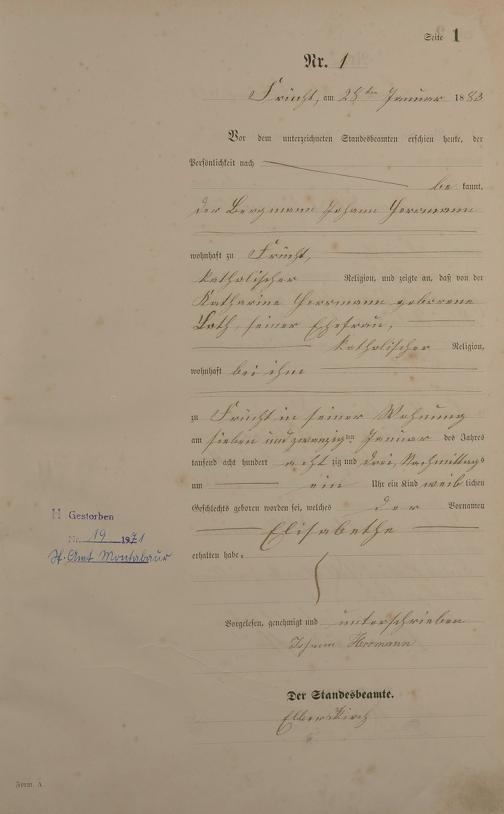 Seite 1
Nr. 1
Frücht, am 28ten Januar 1883
Vor dem unterzeichneten Standesbeamten erschien heute, der
Persönlichkeit nach
be kannt,
der Bergmann Johann Herrmann
wohnhaft zu Frücht,
katholischer Religion, und zeigte an, daß von der
Katharine Herrmann geborene
Loth, seiner Ehefrau,
katholischer Religion,
wohnhaft bei ihm
zu Frücht in seiner Wohnung
am sieben und zwanzigten Januar des Jahres
tausend acht hundert acht zig und drei, Nachmittags
um ein Uhr ein Kind weib lichen
Geschlechts geboren worden sei, welches der Vornamen
Elisabethe
H Gestorben
Nr. 19 1971
St. Amt Montabaur
erhalten habe.
Vorgelesen, genehmigt und unterschrieben
Johann Herrmann
Der Standesbeamte.
Form. A.